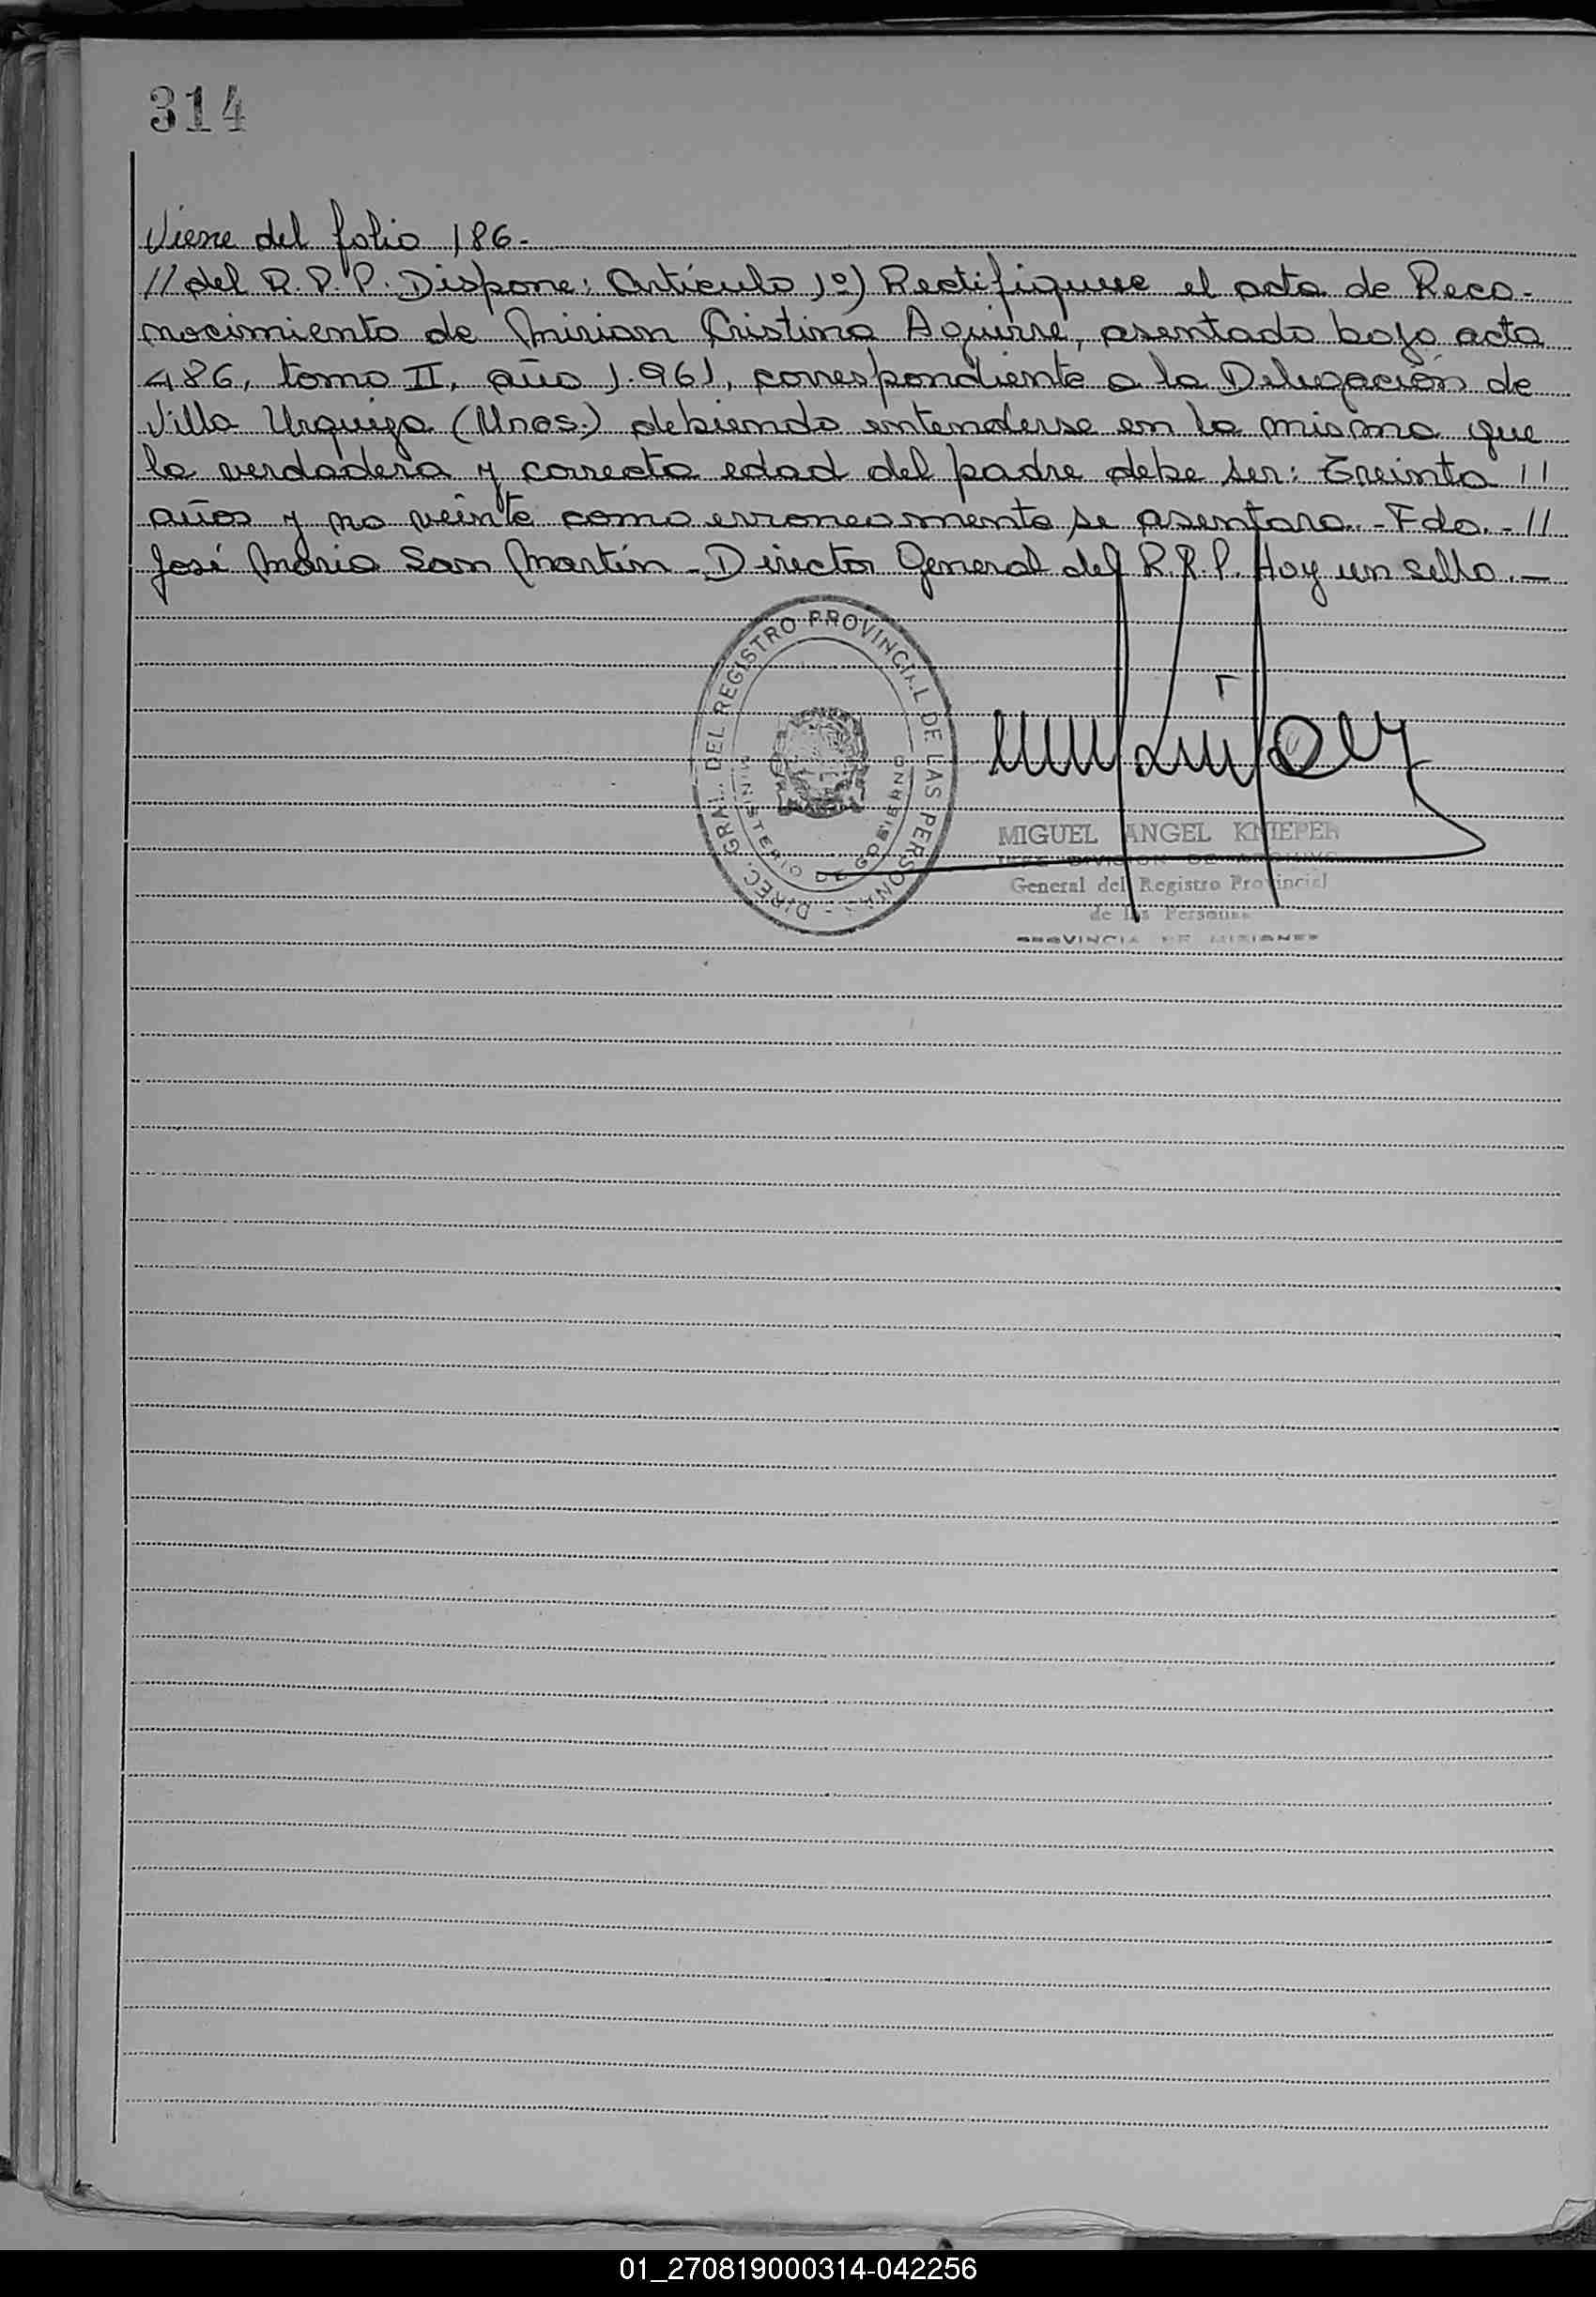 314
Viene del folio 186.-
// del R.P.P. Dispone: Artículo 1º) Rectifiquese el acta de Reco-
nocimiento de Mirian Cristina Aguirre, asentado bajo acta
486, tomo II, año 1.961, correspondiente a la Delegación de
Villa Urquiza (Mnes.) debiendo entenderse en la misma que
la verdadera y correcta edad del padre debe ser: Treinta //
años y no veinte como erroneamente se asentara.- Fdo.- //
José María San Martín - Director General del R.P.P. Hay un sello.-
DIREC. GRAL. DEL REGISTRO PROVINCIAL DE LAS PERSONAS
MINISTERIO DE GOBIERNO
MIGUEL ANGEL KNIEPER
JEFE DIVISION DE ARCHIVO
General del Registro Provincial
de las Personas
PROVINCIA DE MISIONES
01_270819000314-042256